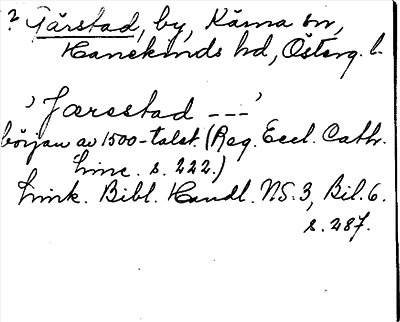 ? Tårstad, by, Kärna sn,
Hanekinds hd, Österg. l.
'Jærestad ---'
början av 1500-talet. (Reg. Eccl. Cath.
Linc. s. 222.)
Link. Bibl. Handl. NS. 3, Bil. 6.
s. 287.